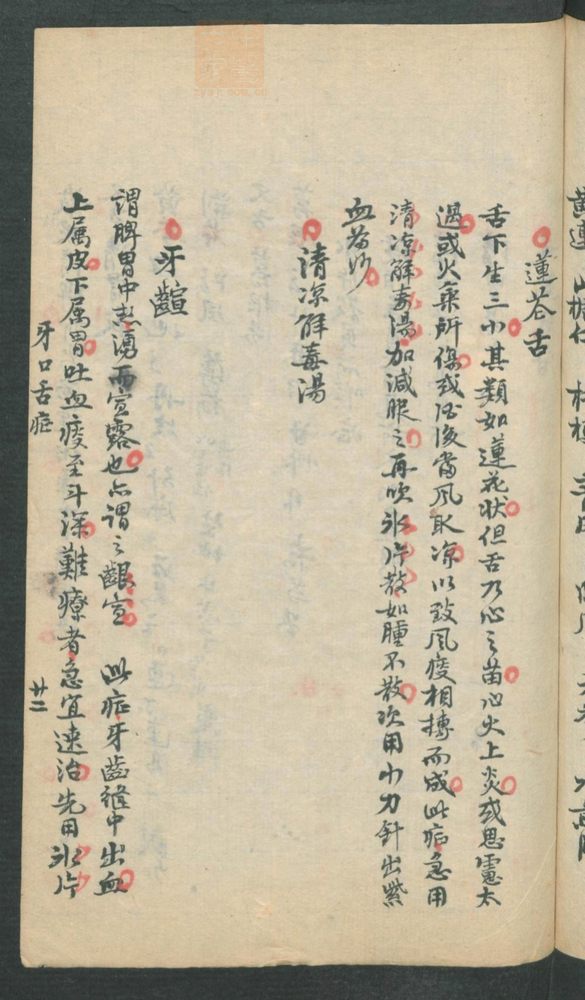 蓮苍舌
舌下生三小其類如蓮花狀但舌乃心之苗心火上炎或思慮太
過或火乘所傷或酒後當風取凉以致風痰相摶而成此症急用
清凉解毒湯加減服之再吹氷片散如腫不散次用小刀針出紫
血為妙
清凉解毒湯
牙齯
謂脾胃中熱湧而宣露也亦謂之齦宣 此症牙齒縫中出血
上属皮下属胃吐血痰至斗深難療者急宜速治先用氷片
牙口舌症
廿二